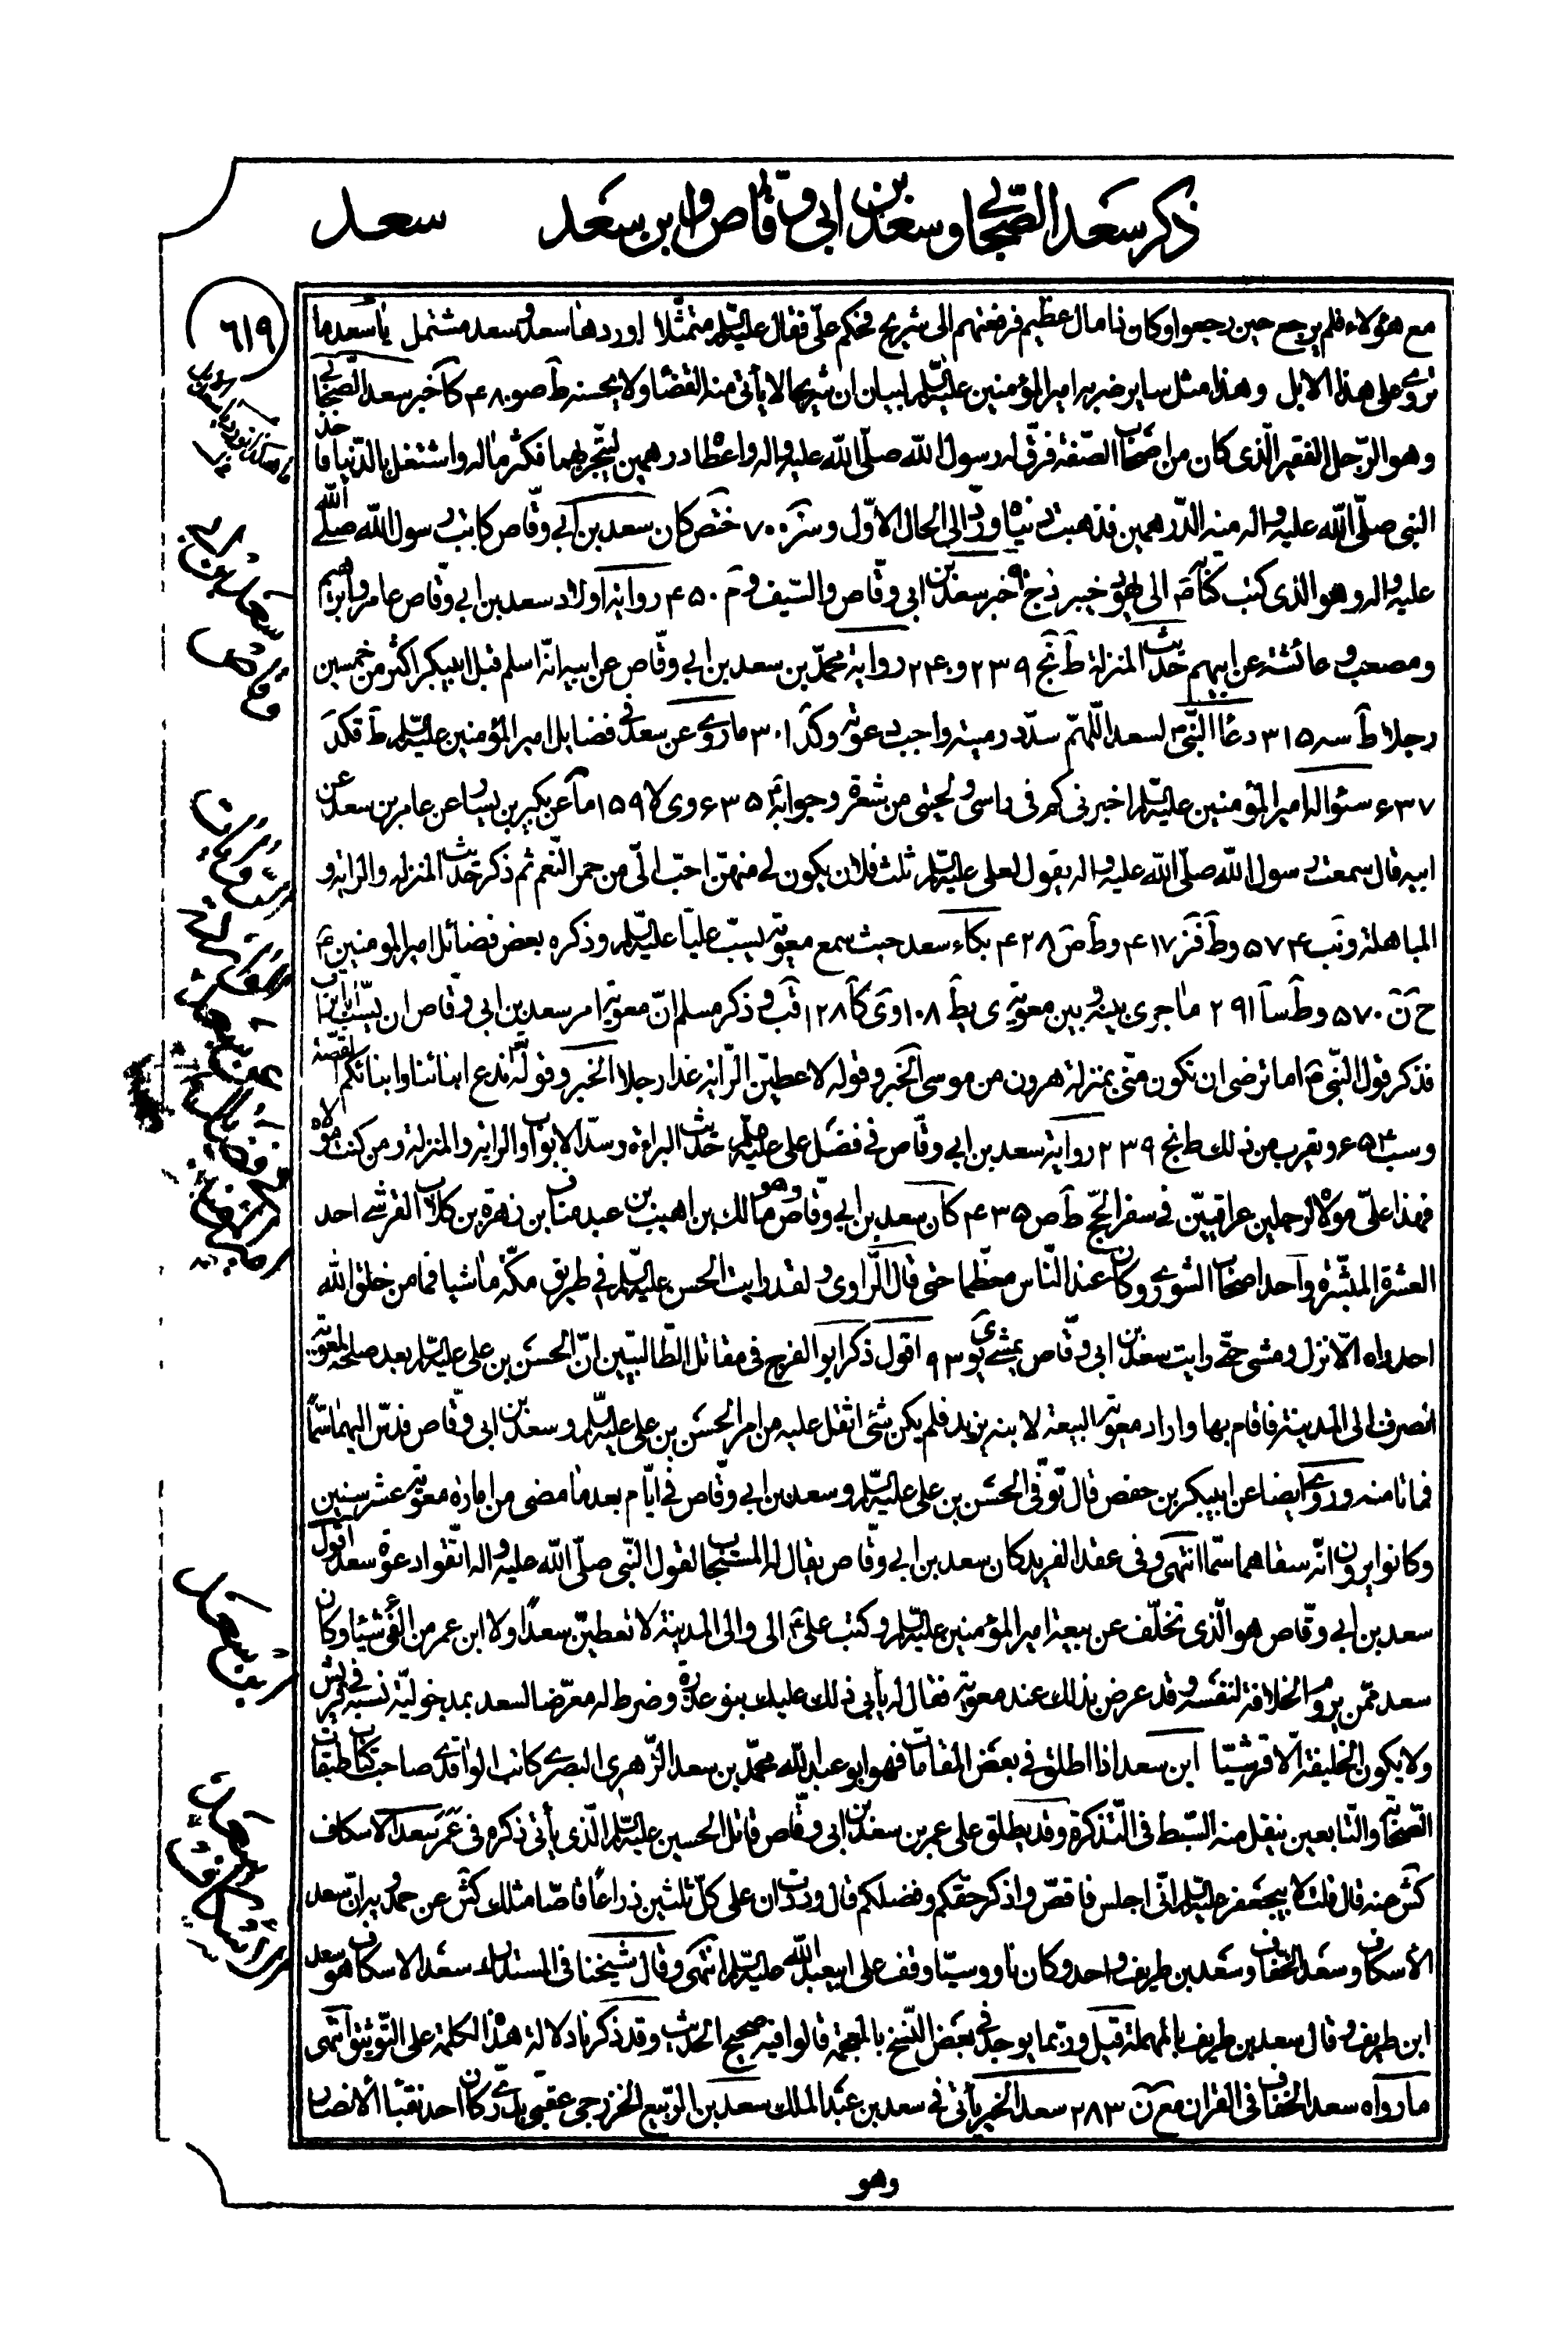 ذكر سعد الصحابي وسعد بن ابي وقاص وابن سعد
سعد
٦١٩
مع هؤلاء فلم يرجع حين رجعوا وكان ذا مال عظيم فرفعتهم الى شريح فحكم علىّ فقال عليه السلم متمثّلا اوردها سعد وسعد مشتمل يا سعد ما
تروى على هذا الابل وهذا مثل سائر ضربه امير المؤمنين عليه السلم لبيان ان شريحا لا يأتى منه القضاء ولا يحسنه ط صو ٤٨٠ كا خبر سعد الصّحابى
وهو الرّجل الفقير الّذى كان من اصحاب الصّفة فرقّ له رسول الله صلّى الله عليه واله واعطاه درهمين ليتّجر بهما فكثر ماله واشتغل بالدّنيا فاخذ
النبى صلّى الله عليه واله منه الدّرهمين فذهبت دنياه وردّ الى الحال الاوّل و سز ٧٠٠ ختص كان سعد بن ابى وقّاص كاتب رسول الله صلّى الله
عليه واله وهو الذى كتب كتابه الى يهود خيبر خبر سعد بن ابى وقّاص والسّيف وم ٤٥٠ رواية اولاد سعد بن ابى وقّاص عامر وابراهيم
ومصعب وعائشة عن ابيهم حديث المنزلة ط نج ٢٣٩ و ٢٤٠ رواية محمّد بن سعد بن ابى وقّاص عن ابيه انّه اسلم قبل ابيبكر اكثر من خمسين
رجلا ط سه ٣١٥ دعاء النّبى لسعد اللّهمّ سدّد رميته واجب دعوته وكد ٣٠١ ما روى عن سعد فى فضايل امير المؤمنين عليه السلم ط قكد
٦٣٧ سئواله امير المؤمنين عليه السلم اخبرنى كم فى راسى ولحيتى من شعرة وجوابه ٦٣٥ وى لا ١٥٩ ما عن بكير بن يسار عن عامر بن سعد عن
ابيه قال سمعت رسول الله صلّى الله عليه واله يقول لعلى عليه السلم ثلث فلان يكون لى منهنّ احبّ الىّ من حمر النّعم ثم ذكر حديث المنزله والرايه و
المباهلة ونب ٥٧٤ وط فز ٤١٧ وط ص ٤٢٨ بكاء سعد حيث سمع معوية يسبّ عليّا عليه السلم وذكره بعض فضائل امير المؤمنين
ح ن ٥٧٠ وط سا ٢٩١ ما جرى بينه وبين معوية ى يط ١٠٨ وى كا ١٢٨ قب وذكر مسلم انّ معوية امر سعد بن ابى وقّاص ان يسبّ ابا تراب
فذكر قول النّبى اما ترضى ان تكون منّى بمنزلة هرون من موسى الخبر وقوله لاعطينّ الرّاية غدا رجلا الخبر وقوله ندع ابنائنا وابنائكم القصّة
وسب ٦٥٤ ويقرب من ذلك ط نج ٢٣٩ رواية سعد بن ابى وقّاص فى فضل على عليه السلم حديث البراءة وسدّ الابواب والراية والمنزلة ومن كنت مولاه
فهذا علىّ مولاه لرجلين عراقيّين فى سفر الحجّ ط ص ٤٣٥ كان سعد بن ابى وقّاص وهو مالك بن اهيب بن عبد مناف بن زهرة بن كلاب القرشى احد
العشرة المبشّرة واحد اصحاب الشورى وكان عند النّاس معظّما حتى قال الرّاوى ولقد رايت الحسن عليه السلم فى طريق مكّة ماشيا فما من خلق الله
احد راه الّا نزل ومشى حتّى رايت سعد بن ابى وقّاص يمشى ى يو ٩٣ اقول ذكر ابو الفرج فى مقاتل الطّالبيّين انّ الحسن بن على عليه السلم بعد صلحه لمعوية
انصرف الى المدينة فاقام بها واراد معوية البيعة لابنه يزيد فلم يكن شئ اثقل عليه من امر الحسن بن على عليه السلم وسعد بن ابى وقّاص فدسّ اليهما سمّا
فماتا منه وروى ايضا عن ابيبكر بن حفص قال توفّى الحسن بن على عليه السلم وسعد بن ابى وقّاص فى ايّام بعد ما مضى من امارة معوية عشر سنين
وكانوا يرون انّه سقاهما سمّا انتهى وفى عقد الفريد كان سعد بن ابى وقّاص يقال له المستجاب لقول النّبى صلّى الله عليه واله اتّقوا دعوة سعد اقول
سعد بن ابى وقّاص هو الّذى تخلّف عن بيعة امير المؤمنين عليه السلم وكتب على الى والى المدينة لا تعطينّ سعدا ولا ابن عمر من الفئ شيئا وكان
سعد ممّن يروم الخلافة لنفسه وقد عرض بذلك عند معوية فقال له يأبى ذلك عليك بنو عذرة وضرط له معرّضا لسعد بمدخوليّة نسبه فى قريش
ولا يكون الخليفة الّا قرشيّا ابن سعد اذا اطلق فى بعض المقامات فهو ابو عبد الله محمّد بن سعد الزّهرى البصرى كاتب الواقدى صاحب كتاب طبقات
الصّحابة والتّابعين ينقل منه السّبط فى التّذكرة وقد يطلق على عمر بن سعد بن ابى وقّاص قاتل الحسين عليه السلم الّذى يأتى ذكره فى عمر سعد الاسكاف
كش عنه قال قلت لابيجعفر عليه السلم انّى اجلس فاقصّ واذكر حقّكم وفضلكم قال وددت ان على كلّ ثلثين ذراعا قاصّا مثلك كش عن حمدويه انّ سعد
الاسكاف وسعد الخفّاف وسعد بن طريف واحد وكان ناووسيّا وقف على ابيعبد الله عليه السلم انتهى وقال شيخنا فى المستدرك سعد الاسكاف هو سعد
ابن طريف وقال سعد بن طريف بالمهملة قيل وربّما يوجد فى بعض النّسخ بالمعجمة قالوا فيه صحيح الحديث وقد ذكرنا دلالة هذه الكلمة على التّوثيق انتهى
ما رواه سعد الخفّاف فى القران مع ن ٢٨٣ سعد الخير يأتى فى سعد بن عبد الملك سعد بن الرّبيع الخزرجى عقبى بدرى كان احد نقباء الانصار
سعد بن ابى
وقاص
ابن سعد
سعد
الاسكاف
وهو